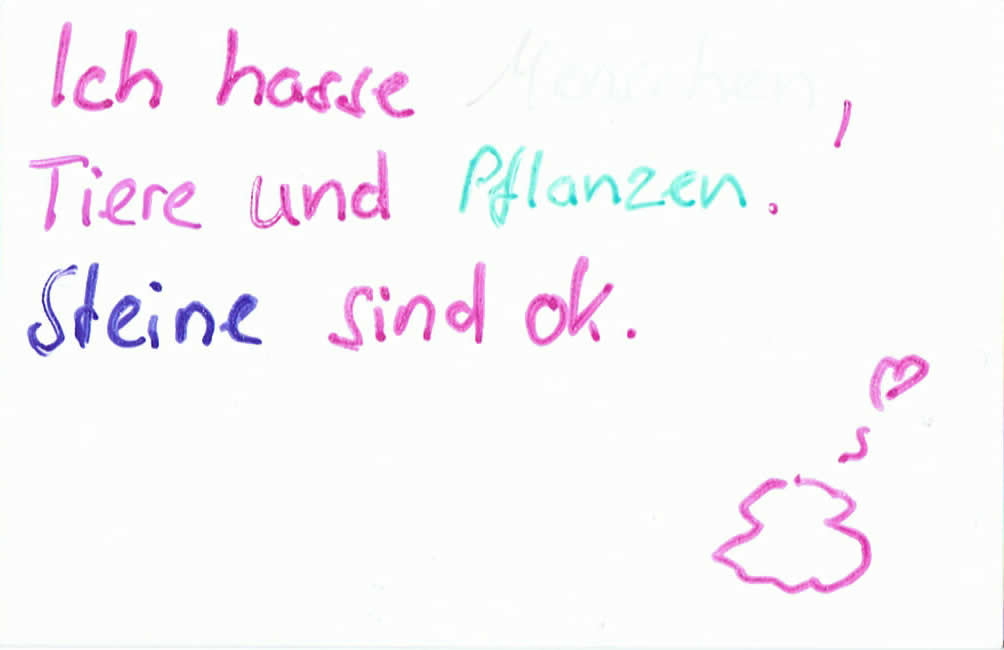 Ich hasse Menschen,
Tiere und Pflanzen.
Steine sind ok.